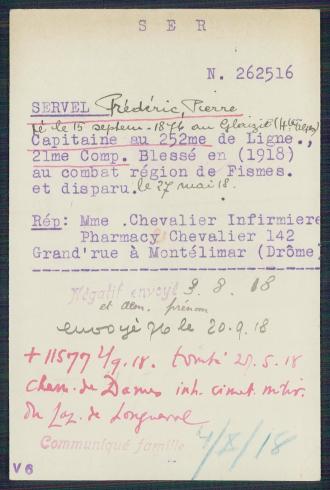 S E R
N. 262516
SERVEL Frédéric, Pierre
né le 15 septem. 1876 au (Htes Alpes)
Capitaine au 252me de Ligne.,
21me Comp. Blessé en (1918)
au combat région de Fismes.
et disparu. le 27 mai 18.
Rép: Mme .Chevalier Infirmiere
Pharmacy Chevalier 142
Grand'rue à Montélimar (Drôme)
Négatif envoyé 9. 8. 18
et dem. prénom
envoyé le 20.9.18
+ 11577 18. tombé 27.5.18
Chem. de Dames inh. cimet. milir.
du Laz. de Longueval
Communiqué famille 18
V 6